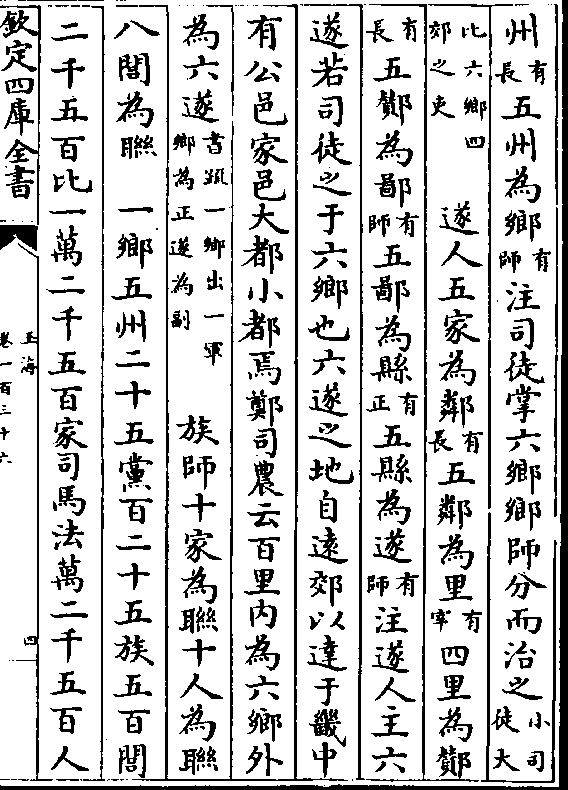 州有長五州為鄉有師注司徒掌六鄉鄉師分而治之小司徒大
比六鄉四郊之吏 遂人五家為鄰有長五鄰為里有宰四里為酇
有長五酇為鄙有師五鄙為縣有正五縣為遂有師注遂人主六
遂若司徒之于六鄉也六遂之地自遠郊以達于畿中
有公邑家邑大都小都焉鄭司農云百里内為六鄉外
為六遂書疏一鄉出一軍鄉為正遂為副 族師十家為聯十人為聯
八閭為聯 一鄉五州二十五黨百二十五族五百閭
二千五百比一萬二千五百家司馬法萬二千五百人
欽定四庫全書 玉海 卷一百三十六 四